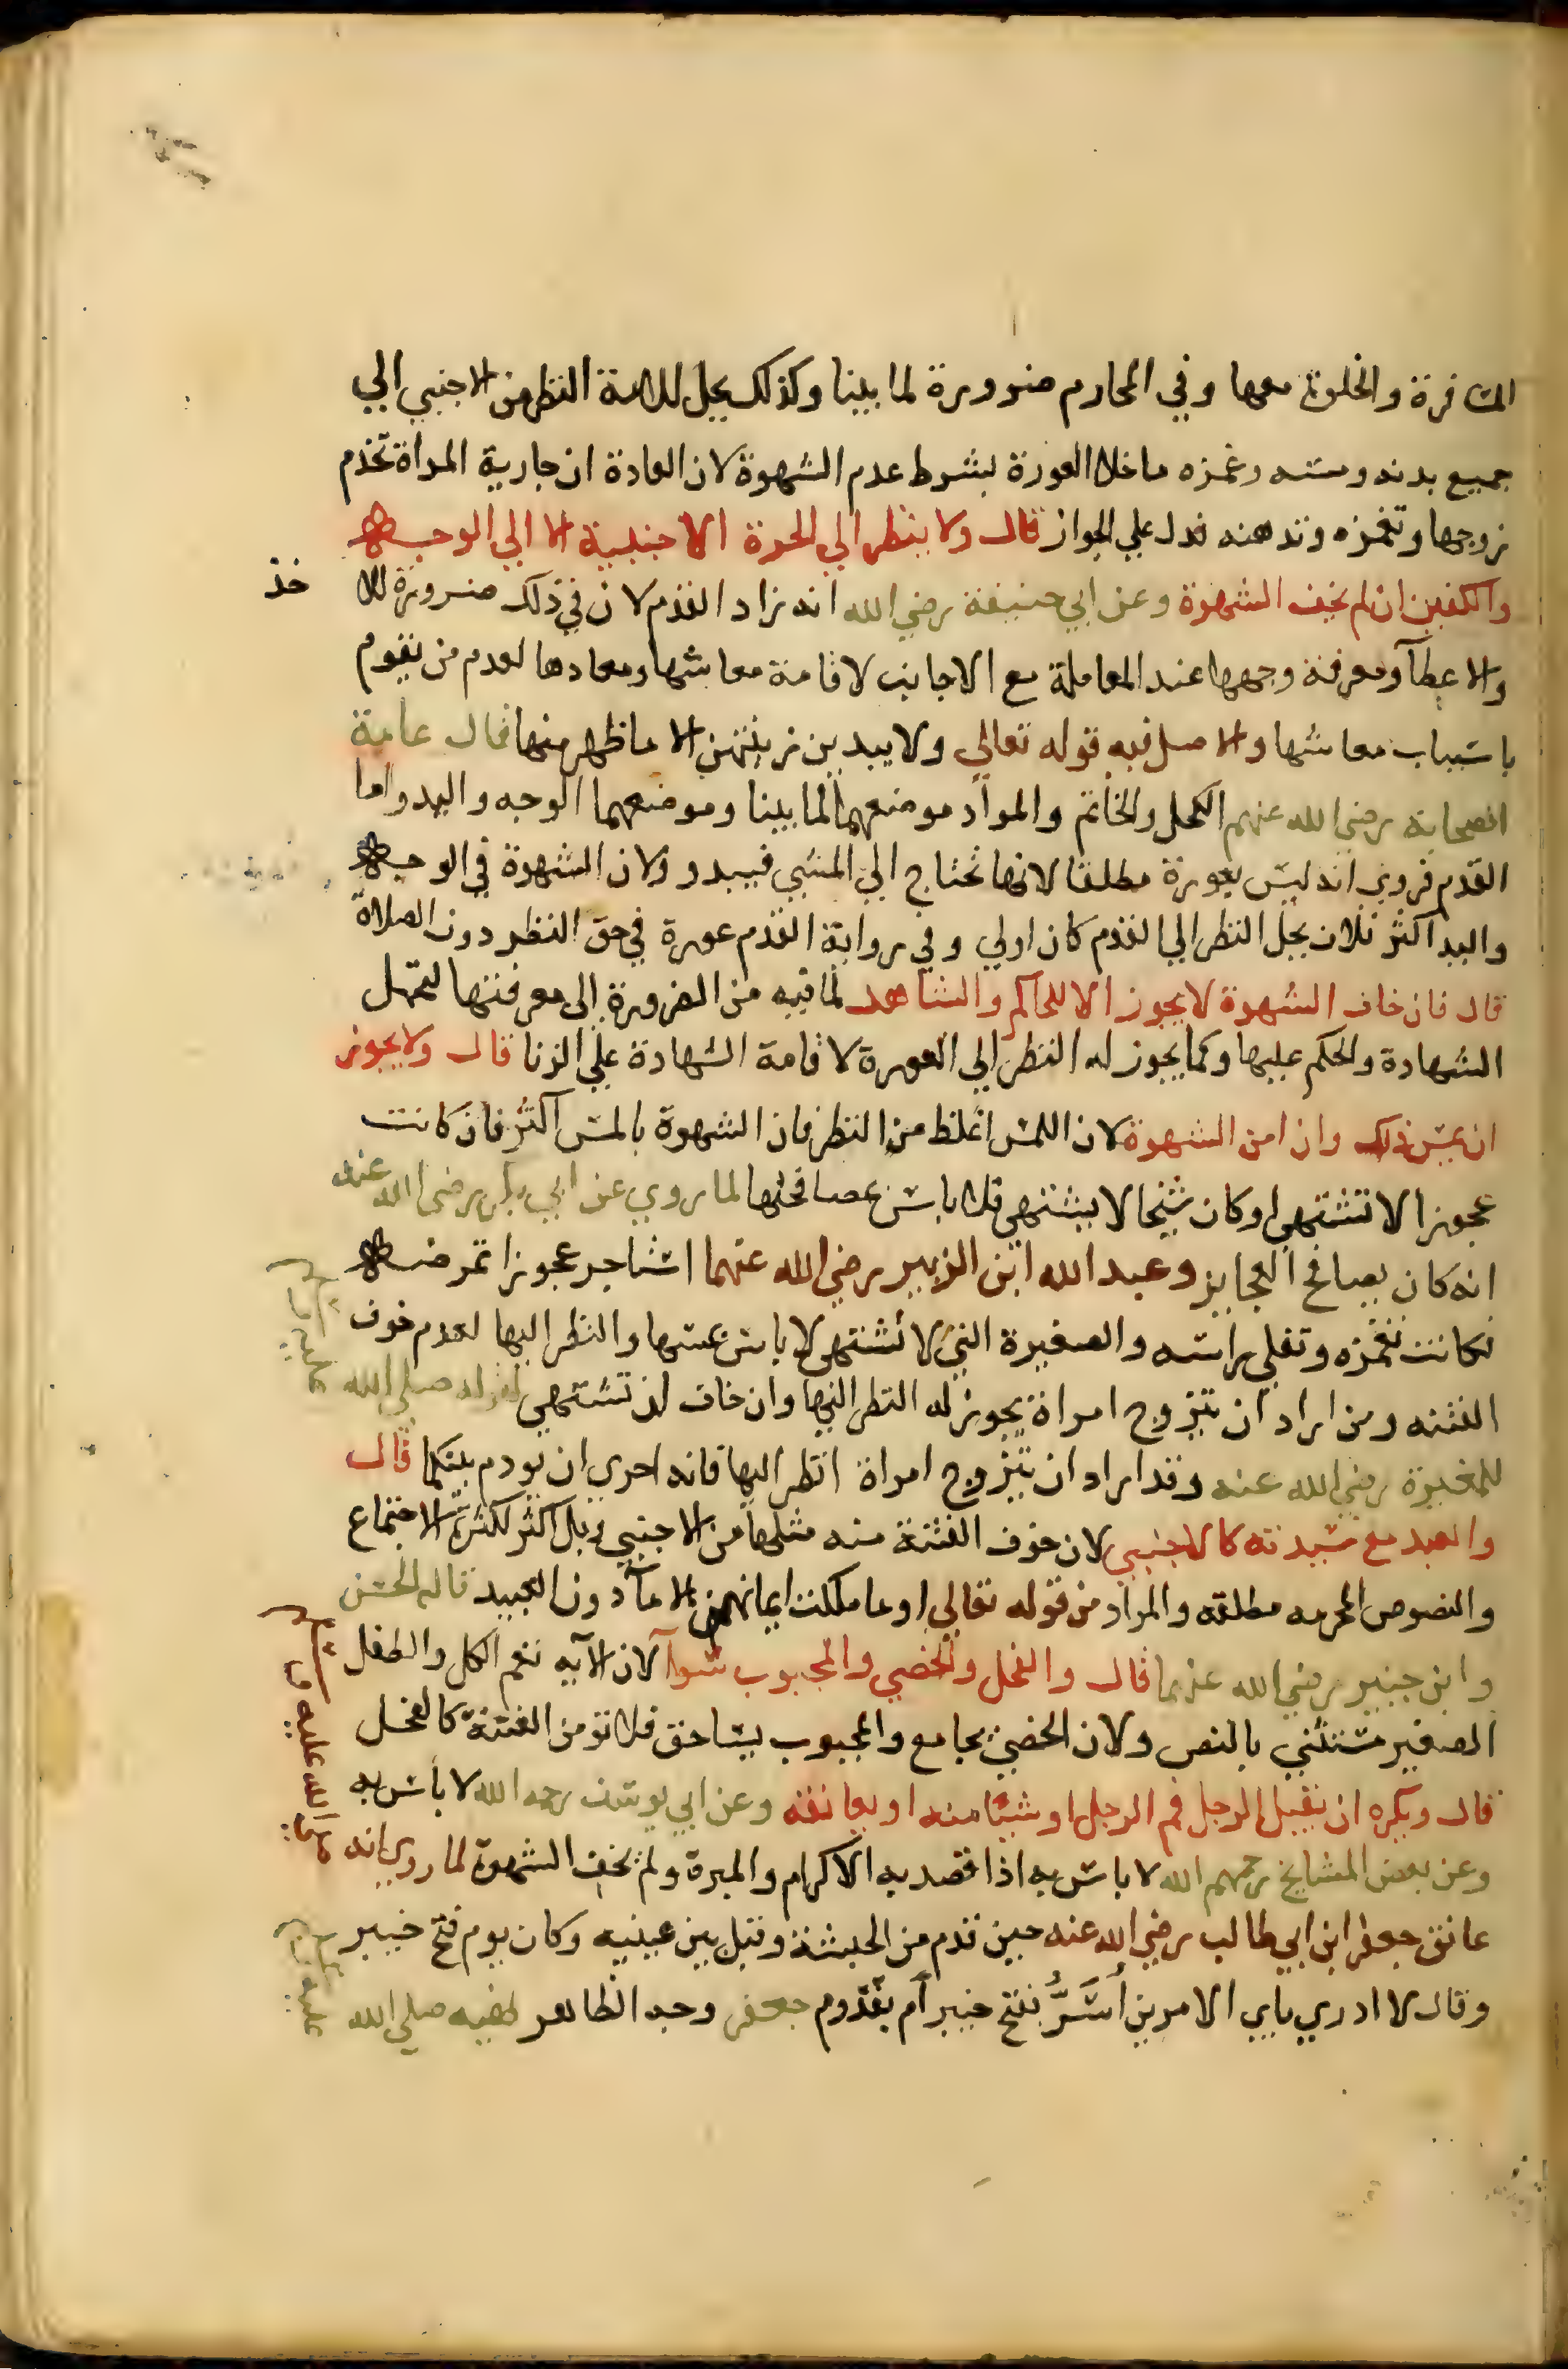 المسافرة والخلوة معها وفي المحارم ضرورة لما بينا وكذلك يحل للامة النظر من الاجنبي الي
جميع بدنه ومسه وغمزه ما خلا العورة بشرط عدم الشهوة لان العادة ان جارية المراة تخدم
زوجها وتغمزه وتدهنه فدل علي الجواز قال ولا ينظر الي الحرة الاجنبية الا الي الوجه
والكفين ان لم يخف الشهوة وعن ابي حنيفة رضي الله انه زاد القدم لان في ذلك ضرورة للا خذ
والاعطآ ومعرفة وجهها عند المعاملة مع الاجانب لاقامة معاشها ومعادها لعدم من يقوم
باسباب معاشها والاصل فيه قوله تعالي ولا يبدين زينتهن الا ما ظهر منها قال عامة
الصحابة رضي الله عنهم الكحل والخاتم والمراد موضعهما لما بينا وموضعهما الوجه واليد واما
القدم فروي انه ليس بعورة مطلقا لانها تحتاج الي المشي فيبدو ولان الشهوة في الوجه
واليد اكثر فلان يحل النظر الي القدم كان اولي وفي رواية القدم عورة في حق النظر دون الصلاة
قال فان خاف الشهوة لا يجوز الا للحاكم والشاهد لما فيه من الضرورة الي معرفتها لتحمل
الشهادة والحكم عليها وكما يجوز له النظر الي العورة لاقامة الشهادة علي الزنا قال ولا يجوز
ان يمس ذلك وان امن الشهوة لان اللمس اغلظ من النظر فان الشهوة بالمس اكثر فان كانت
عجوزا لا تشتهي او كان شيخا لا يشتهي فلا باس بمصافحتها لما روي عن ابي بكر رضي الله عنه
انه كان يصافح العجايز وعبد الله ابن الزبير رضي الله عنهما استاجر عجوزا تمرضه
فكانت تغمزه وتفلي راسه والصغيرة التي لا تشتهي لا باس بمسها والنظر اليها لعدم خوف
الفتنه ومن اراد ان يتزوج امراة يجوز له النظر اليها وان خاف ان تشتهي لقوله صلي الله عليه وسلم
للمغيرة رضي الله عنه وقد اراد ان يتزوج امراة انظر اليها فانه احري ان يودم بينكما قال
والعبد مع سيدته كالاجنبي لان خوف الفتنة منه مثلها من الاجنبي بل اكثر لكثرة الاجتماع
والنصوص المحرمه مطلقه والمراد من قوله تعالي او ما ملكت ايمانهن الامآ دون العبيد قاله الحسن
وابن جبير رضي الله عنهما قال والفحل والخصي والمجبوب سوآ لان الآيه تعم الكل والطفل
الصغير مستثني بالنص ولان الخصي يجامع والمجبوب يساحق فلا تؤمن الفتنة كالفحل
قال ويكره ان يقبل الرجل فم الرجل او شيئا منه او يعانقه وعن ابي يوسف رحمه الله لا باس به
وعن بعض المشايخ رحمهم الله لا باس به اذا قصد به الاكرام والمبرة ولم يخف الشهوة لما روي انه صلي الله عليه وسلم
عانق جعفر ابن ابي طالب رضي الله عنه حين قدم من الحبشة وقبل بين عينيه وكان يوم فتح خيبر
وقال لا ادري باي الامرين أُسَرُّ بفتح خيبر أم بقدوم جعفر وجه الظاهر نهيه صلي الله عليه وسلم